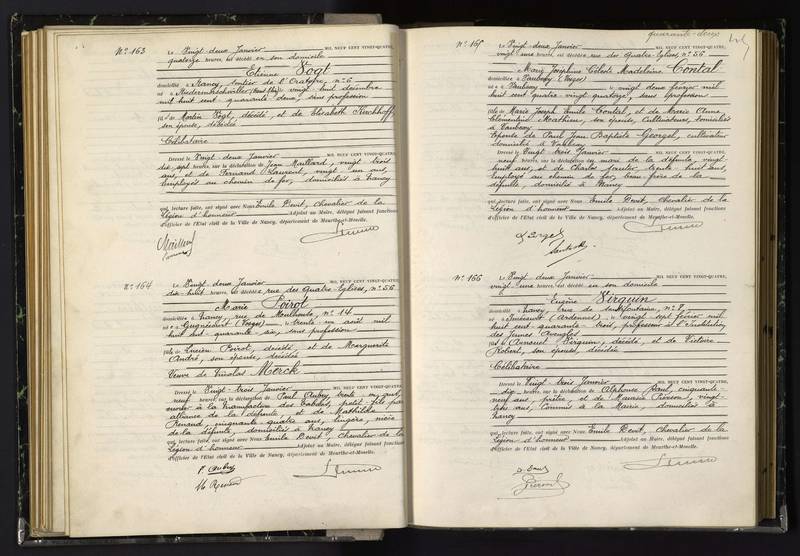 N° 163
Le Vingt-deux Janvier MIL NEUF CENT VINGT-QUATRE,
quatorze heures, est décédé en son domicile
Etienne Vogt
domicilié à Nancy, sentier de l'Oratoire, n° 6
né à Niedermorschwiller (Haut-Rhin) vingt-huit décembre
mil huit cent quarante deux, sans profession
fils de Martin Vogt, décédé, et de Elisabeth Kirchhoff,
son épouse, décédée
Célibataire
Dressé le Vingt-deux Janvier MIL NEUF CENT VINGT-QUATRE,
dix sept heures, sur la déclaration de Jean Maillard, vingt trois
ans, et de Fernand Laurent, vingt un ans,
employés au chemin de fer, domiciliés à Nancy
qui, lecture faite, ont signé avec Nous Emile Devit, Chevalier de la
Légion d'honneur Adjoint au Maire, délégué faisant fonctions
d'officier de l'Etat civil de la Ville de Nancy, département de Meurthe-et-Moselle.
N° 164
Le Vingt-deux Janvier MIL NEUF CENT VINGT-QUATRE,
dix huit heures, est décédée rue des Quatre-Eglises, n° 56
Marie Poirot
domiciliée à Nancy, rue de Mulhouse, n° 14
née à Gugnécourt (Vosges) le trente un août mil
huit cent quarante six, sans profession
fille de Lucien Poirot, décédé, et de Marguerite
André, son épouse, décédée
Veuve de Nicolas Merck
Dressé le Vingt-trois Janvier MIL NEUF CENT VINGT-QUATRE,
neuf heures, sur la déclaration de Paul Aubry, trente ans,
ouvrier à la Manufacture des Tabacs, petit-fils par
alliance de la défunte, et de Mathilde
Renaud, cinquante quatre ans, lingère, nièce
de la défunte, domiciliés à Nancy
qui, lecture faite, ont signé avec Nous Emile Devit, Chevalier de la
Légion d'honneur Adjoint au Maire, délégué faisant fonctions
d'officier de l'Etat civil de la Ville de Nancy, département de Meurthe-et-Moselle.
P. Aubry
quarante-deux
N° 165
Le Vingt deux Janvier MIL NEUF CENT VINGT-QUATRE,
vingt une heures, est décédée rue des Quatre-Eglises, n° 56
Marie Joséphine Céleste Madeleine Contal
domiciliée à Vaubexy (Vosges)
née à Vaubexy le vingt deux février mil
huit cent quatre vingt quatorze, sans profession
fille de Marie Joseph Emile Contal, et de Marie Anne
Clémentine Mathieu, son épouse, cultivateurs, domiciliés
à Vaubexy
Epouse de Paul Jean Baptiste Georgel, cultivateur
domicilié à Vaubexy
Dressé le Vingt trois Janvier MIL NEUF CENT VINGT-QUATRE,
neuf heures, sur la déclaration du mari de la défunte, vingt
huit ans, et de Charles trente huit ans,
employé au chemin de fer, beau frère de la
défunte, domicilié à Nancy
qui, lecture faite, ont signé avec Nous Emile Devit, Chevalier de la
Légion d'honneur Adjoint au Maire, délégué faisant fonctions
d'officier de l'Etat civil de la Ville de Nancy, département de Meurthe-et-Moselle.
N° 166
Le Vingt deux Janvier MIL NEUF CENT VINGT-QUATRE,
vingt-une heures, est décédé en son domicile
Eugène Sirguin
domicilié à Nancy, rue de Santifontaine n° 7
né à (Ardennes) le vingt sept février mil
huit cent quarante trois, professeur à l'Institution
des Jeunes Aveugles
fils de Sirguin, décédé, et de Victoire
Robert, son épouse, décédée
Célibataire
Dressé le Vingt trois Janvier MIL NEUF CENT VINGT-QUATRE,
dix heures, sur la déclaration de Alphonse Paul, cinquante
neuf ans, prêtre, et de Maurice Pierson, vingt-
ans, Commis à la Mairie, domiciliés à
Nancy
qui, lecture faite, ont signé avec Nous Emile Devit, Chevalier de la
Légion d'honneur Adjoint au Maire, délégué faisant fonctions
d'officier de l'Etat civil de la Ville de Nancy, département de Meurthe-et-Moselle.